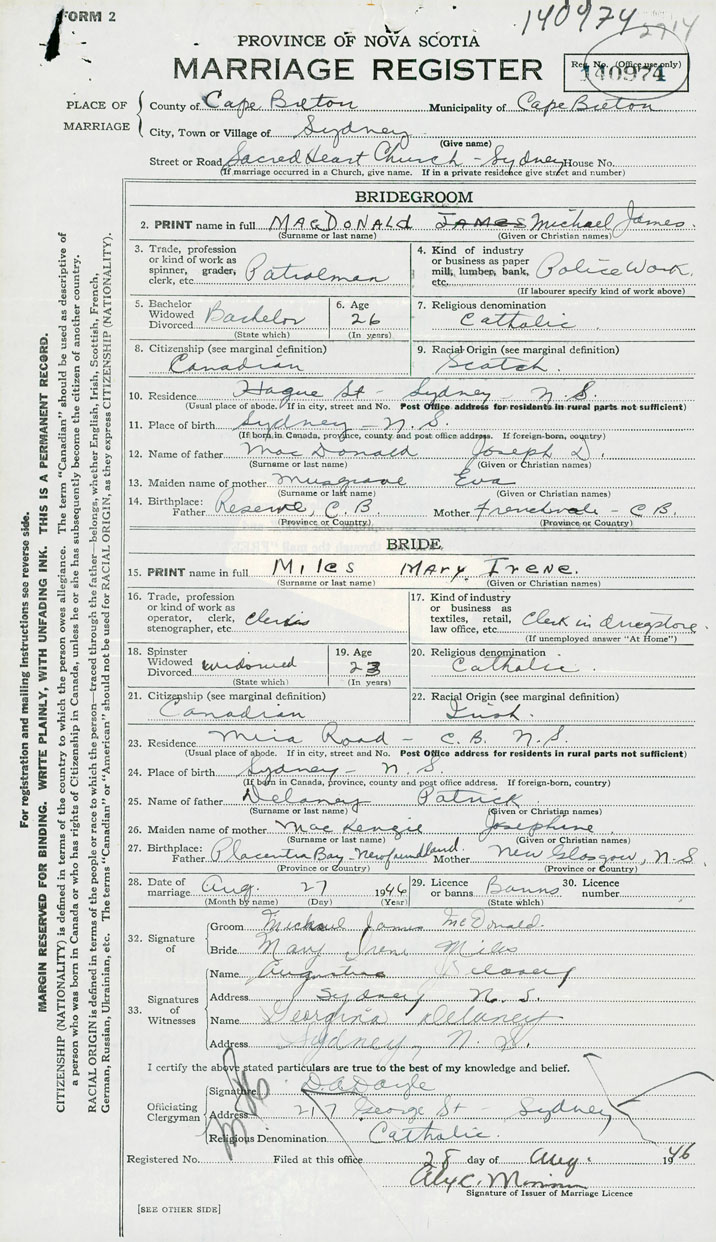 FORM 2
140974
2914
PROVINCE OF NOVA SCOTIA
MARRIAGE REGISTER
Reg. No. (Office use only)
140974
PLACE OF MARRIAGE
County of Cape Breton Municipality of Cape Breton
City, Town or Village of Sydney
(Give name)
Street or Road Sacred Heart Church - Sydney House No.
(If marriage occurred in a Church, give name. If in a private residence give street and number)
BRIDEGROOM
2. PRINT name in full MACDONALD JAMES Michael James.
(Surname or last name) (Given or Christian names)
3. Trade, profession or kind of work as spinner, grader, clerk, etc. Patrolman
4. Kind of industry or business as paper mill, lumber, bank, etc. Police Work.
(If labourer specify kind of work above)
5. Bachelor Widowed Divorced Bachelor
(State which)
6. Age 26
(In years)
7. Religious denomination
Catholic
8. Citizenship (see marginal definition)
Canadian
9. Racial Origin (see marginal definition)
Scotch.
10. Residence Hague St - Sydney - N.S.
(Usual place of abode. If in city, street and No. Post Office address for residents in rural parts not sufficient)
11. Place of birth Sydney - N.S.
(If born in Canada, province, county and post office address. If foreign-born, country)
12. Name of father MacDonald Joseph D.
(Surname or last name) (Given or Christian names)
13. Maiden name of mother Musgrave Eva
(Surname or last name) (Given or Christian names)
14. Birthplace: Father Reserve, C.B. Mother Frenchvale - C.B.
(Province or Country) (Province or Country)
BRIDE
15. PRINT name in full Miles Mary Irene.
(Surname or last name) (Given or Christian names)
16. Trade, profession or kind of work as operator, clerk, stenographer, etc.
17. Kind of industry or business as textiles, retail, law office, etc. Clerk in drugstore.
(If unemployed answer "At Home")
18. Spinster Widowed Divorced widowed
(State which)
19. Age 23
(In years)
20. Religious denomination
Catholic
21. Citizenship (see marginal definition)
Canadian
22. Racial Origin (see marginal definition)
Irish.
23. Residence Mira Road - C.B. N.S.
(Usual place of abode. If in city, street and No. Post Office address for residents in rural parts not sufficient)
24. Place of birth Sydney - N.S.
(If born in Canada, province, county and post office address. If foreign-born, country)
25. Name of father Delaney Patrick
(Surname or last name) (Given or Christian names)
26. Maiden name of mother MacKenzie Josephine
(Surname or last name) (Given or Christian names)
27. Birthplace: Father Placentia Bay - Newfoundland. Mother New Glasgow, N.S.
(Province or Country) (Province or Country)
28. Date of marriage Aug. 27 1946
(Month by name) (Day) (Year)
29. Licence or banns Banns
(State which)
30. Licence number
32. Signature of
Groom Michael James McDonald.
Bride Mary Irene Miles
33. Signatures of Witnesses
Name Delaney
Address Sydney N.S.
Name Georgina Delaney
Address Sydney, N.S.
I certify the above stated particulars are true to the best of my knowledge and belief.
Officiating Clergyman
Signature D.A. Doyle
Address 217 George St - Sydney
Religious Denomination Catholic.
Registered No. Filed at this office 28 day of Aug. 1946
Signature of Issuer of Marriage Licence
[SEE OTHER SIDE]
For registration and mailing instructions see reverse side.
MARGIN RESERVED FOR BINDING. WRITE PLAINLY, WITH UNFADING INK. THIS IS A PERMANENT RECORD.
CITIZENSHIP (NATIONALITY) is defined in terms of the country to which the person owes allegiance. The term "Canadian" should be used as descriptive of
a person who was born in Canada or who has rights of Citizenship in Canada, unless he or she has subsequently become the citizen of another country.
RACIAL ORIGIN is defined in terms of the people or race to which the person—traced through the father—belongs, whether English, Irish, Scottish, French,
German, Russian, Ukrainian, etc. The terms "Canadian" or "American" should not be used for RACIAL ORIGIN, as they express CITIZENSHIP (NATIONALITY).